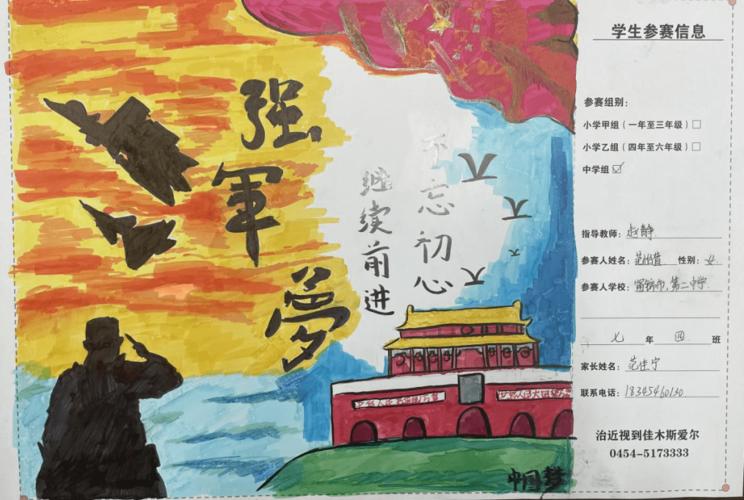 强軍夢
不忘初心
继续前进
中国梦
学生参赛信息
参赛组别：
小学甲组（一年至三年级）□
小学乙组（四年至六年级）□
中学组☑
指导教师：赵静
参赛人姓名： 性别：女
参赛人学校： 第二中学
七 年 四 班
家长姓名：
联系电话：18345460130
治近视到佳木斯爱尔
0454-5173333